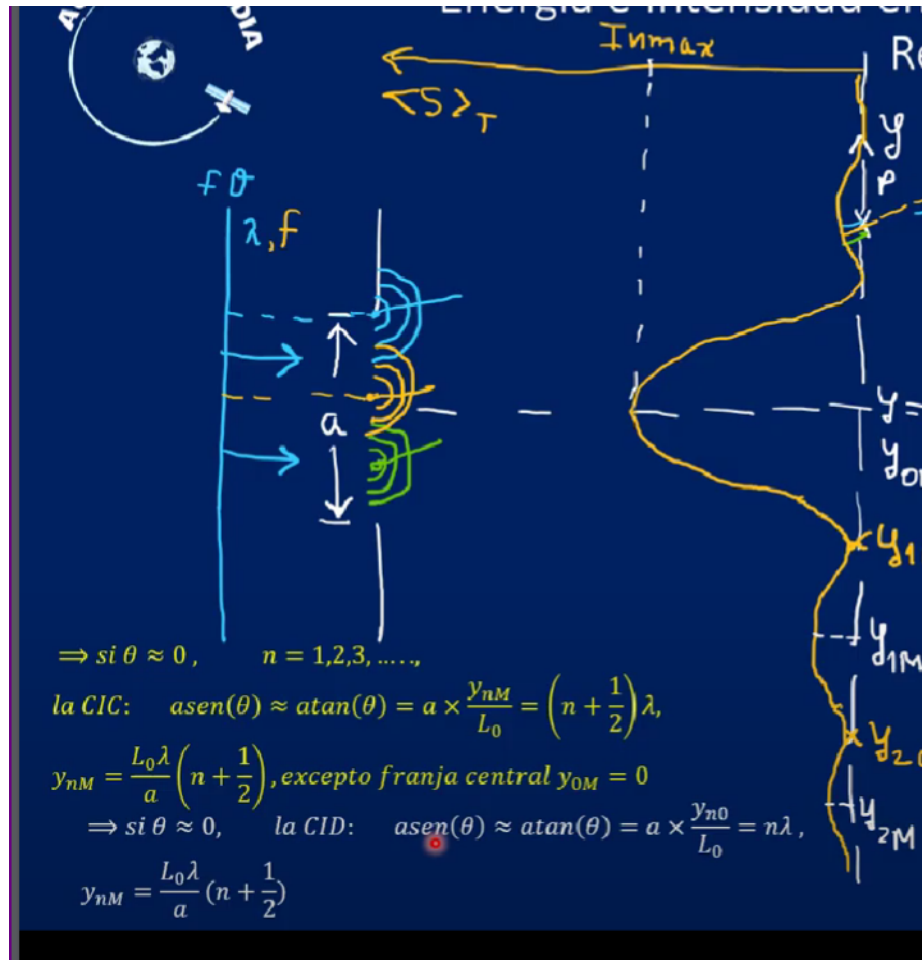 DIA
Energía e intensidad en
Inmax
Re
<S>T
y
P
λ, f
a
y=
y1
y1M
y2M
⟹ si θ ≈ 0 , n = 1,2,3, .....,
la CIC: asen(θ) ≈ atan(θ) = a × ynM/L0 = (n + 1/2) λ,
ynM = L0λ/a (n + 1/2), excepto franja central y0M = 0
⟹ si θ ≈ 0, la CID: asen(θ) ≈ atan(θ) = a × yn0/L0 = nλ ,
ynM = L0λ/a (n + 1/2)